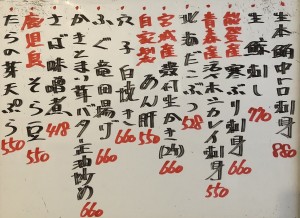 生本鮪中トロ刺身 880
生鯖刺し 770
能登産寒ぶり刺身 660
青森産ホウボウカレイ刺身 550
北海だこぶつ 528
宮城産殻付生かき(2ヶ) 660
自家製あん肝 550
穴子白焼き 660
ふぐ竜田揚げ 660
くきわかめバター正油炒め 660
さば味噌煮 418
鹿児島産そら豆 550
たらの芽天ぷら 550